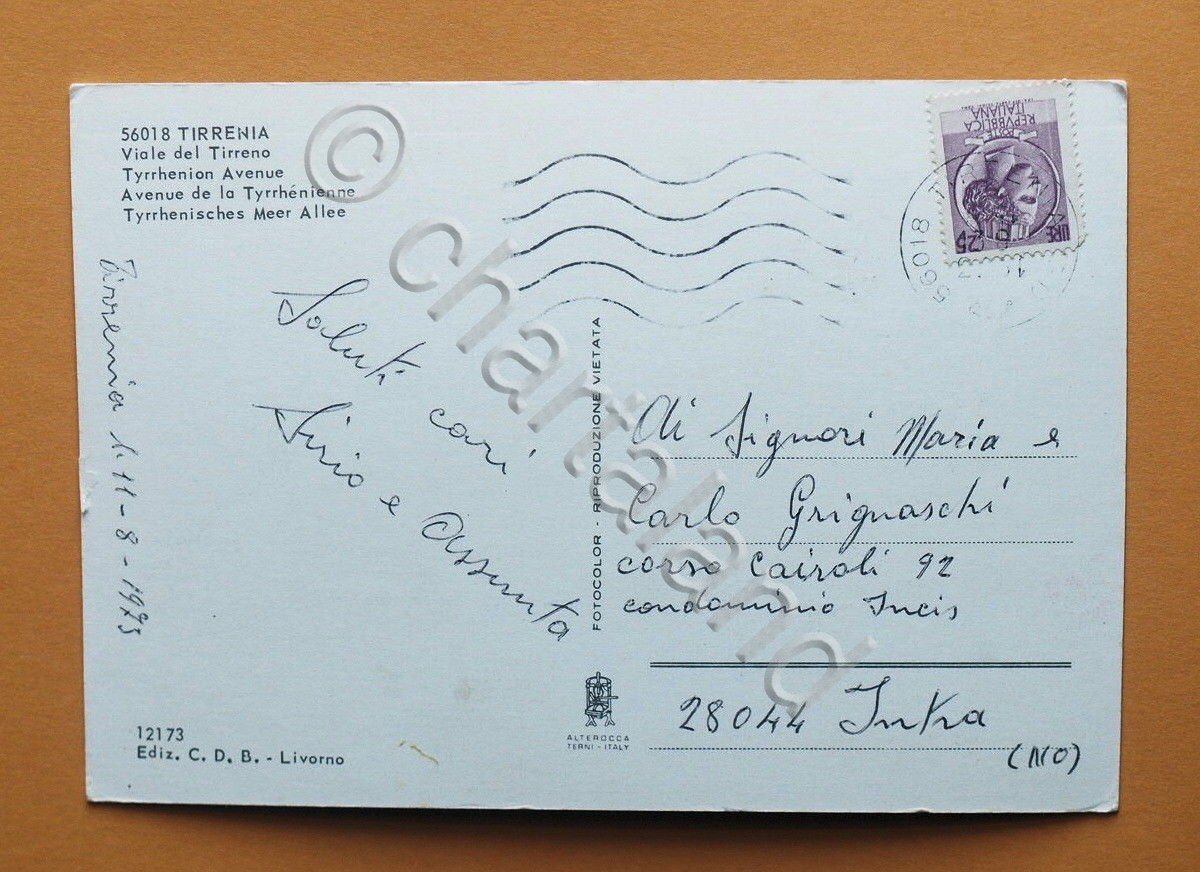 56018 TIRRENIA
Viale del Tirreno
Tyrrhenion Avenue
Avenue de la Tyrrhénienne
Tyrrhenisches Meer Allee
Tirrenia li 11-8-1975
Saluti cari
Sirio e Assunta
12173
Ediz. C. D. B. - Livorno
FOTOCOLOR - RIPRODUZIONE VIETATA
ALTEROCCA
TERNI - ITALY
POSTE
REPVBBLICA
ITALIANA
LIRE 25
56018
Ai Signori Maria e
Carlo Grignaschi
corso Cairoli 92
condominio Incis
28044 Intra
(NO)
© chartaland